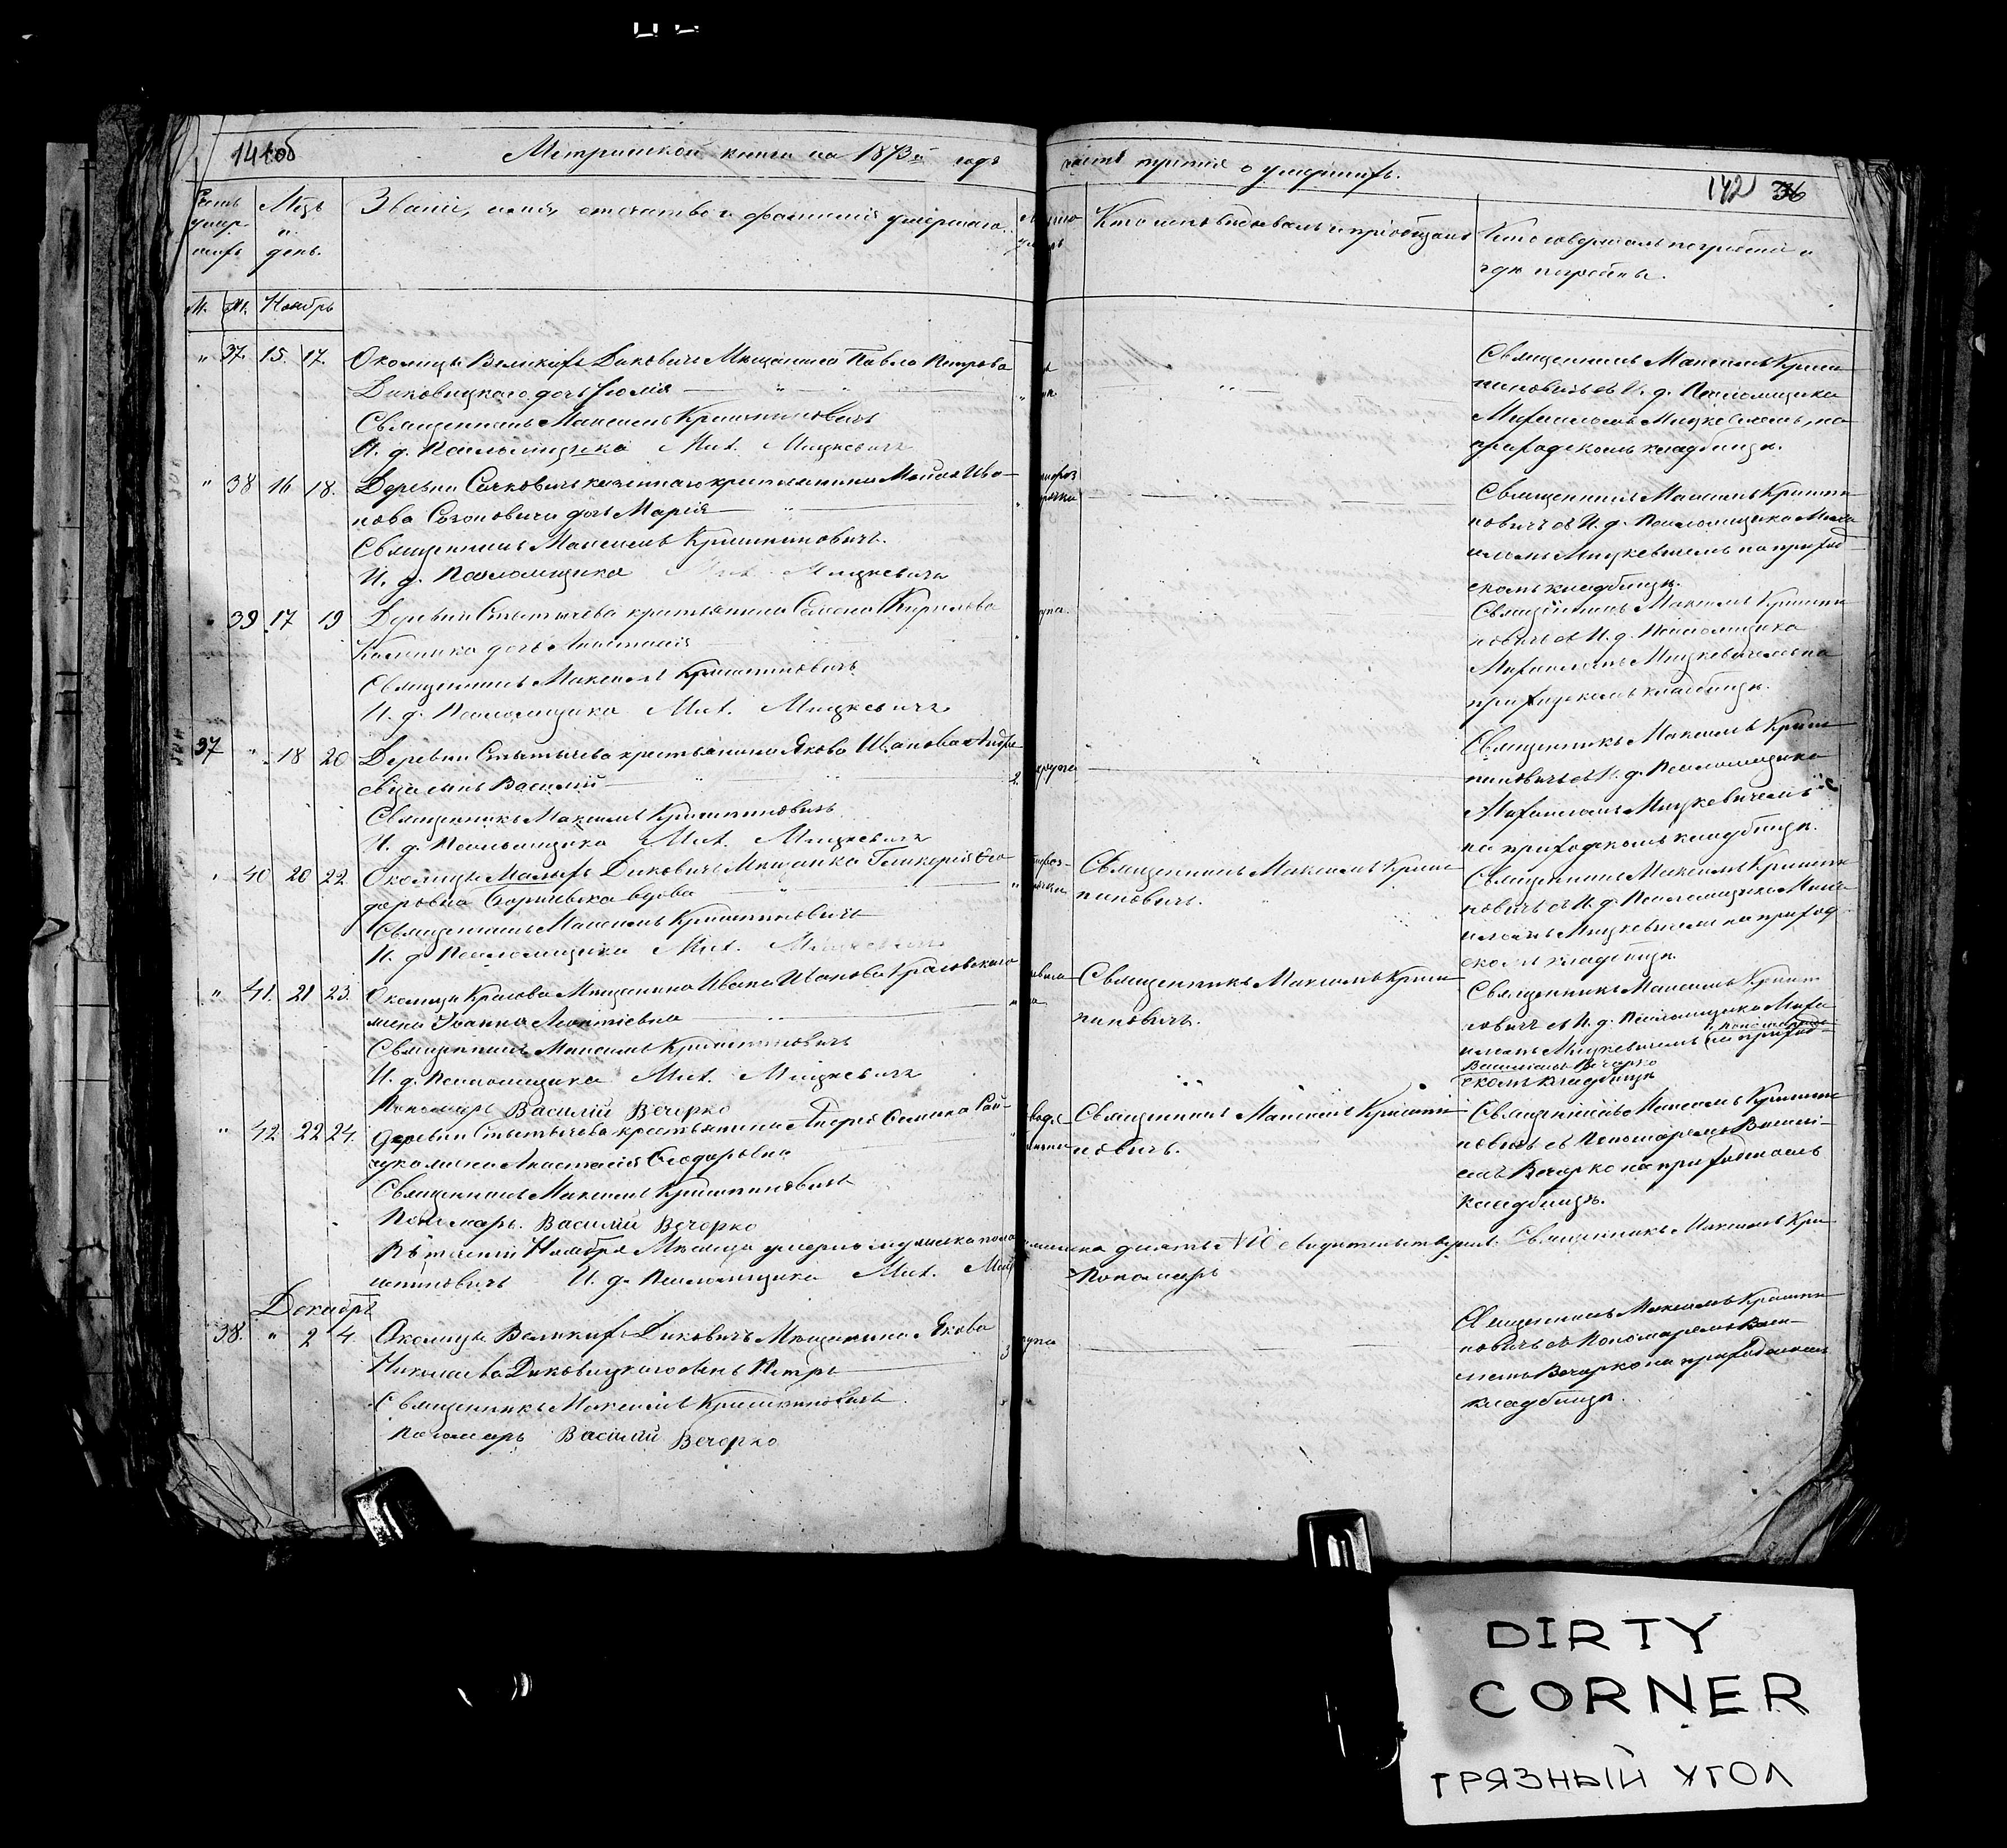 141об
Метрической книги на 1873й годъ
часть третія о умершихъ.
142 36
Счетъ умер-шихъ
Мѣсъ и день.
Званіе, имя, отечество и фамилія умершаго.
Кто исповѣдывалъ и пріобщалъ
Кто совершалъ погребеніе и
гдѣ погребены.
М. Ж. Ноябрь
" 37. 15. 17. Околицы Великихъ Диковичъ Мѣщанина Павла Петрова
Диковицкаго дочь Юлія
Священникъ Максимъ Криштиновичъ
И. д. Псаломщика Мих. Мицкевичъ
Священникъ Максимъ Кришти
новичъ съ И. д. Псаломщика
Михаиломъ Мицкевичемъ, на
приходскомъ кладбищѣ.
" 38 16 18. Деревни Сачковичъ казеннаго крестьянина Ива-
нова дочь Марія
Священникъ Максимъ Криштиновичъ.
И. д. Псаломщика Мих. Мицкевичъ
Священникъ Максимъ Кришти
новичъ съ И. д. Псаломщика Миха
иломъ Мицкевичемъ на приход
скомъ кладбищѣ.
39 17 19 Деревни Стытычева крестьянина Семена Кирилова
дочь Анастасія
Священникъ Максимъ Криштиновичъ
И. д. Псаломщика Мих. Мицкевичъ
Священникъ Максимъ Кришти
новичъ съ И. д. Псаломщика
Михаиломъ Мицкевичемъ на
приходскомъ кладбищѣ.
37 " 18 20 Деревни Стытычева крестьянина Якова Иванова
сынъ Василій 2
Священникъ Максимъ Криштиновичъ
И. д. Псаломщика Мих. Мицкевичъ
Священникъ Максимъ Кришти
новичъ съ И. д. Псаломщика
Михаиломъ Мицкевичемъ
на приходскомъ кладбищѣ.
" 40 20 22 Околицы Малыхъ Диковичъ Мѣщанка Гликерія Ѳео
доровна вдова
Священникъ Максимъ Криштиновичъ
И. д. Псаломщика Мих. Мицкевичъ
Священникъ Максимъ Кришти
новичъ.
Священникъ Максимъ Кришти
новичъ съ И. д. Псаломщика Миха
иломъ Мицкевичемъ на приход
скомъ кладбищѣ.
" 41. 21 23. Околицы Красова Мѣщанина Ивана Иванова Красовскаго
жена Іоанна Леонтіевна
Священникъ Максимъ Криштиновичъ
И. д. Псаломщика Мих. Мицкевичъ
Пономарь Василій Вечерко
Священникъ Максимъ Кришти
новичъ.
Священникъ Максимъ Кришти
новичъ съ И. д. Псаломщика Миха
иломъ Мицкевичемъ и Пономаремъ на приход
Василіемъ Вечерко
скомъ кладбищѣ
" 42 22 24. Деревни Стытычева крестьянина Андрея
жена Анастасія Ѳеодоровна
Священникъ Максимъ Криштиновичъ
Пономарь Василій Вечерко
Священникъ Максимъ Кришти
новичъ.
Священникъ Максимъ Кришти
новичъ съ Пономаремъ Васи-
емъ Вечерко на приходскомъ
кладбищѣ.
Въ теченіи Ноября Мѣсяца умерло мужеска пола
Священникъ Максимъ Кри
штиновичъ И. д. Псаломщика Мих.
Пономарь
Декабрь
38. " 2 4. Околицы Великихъ Диковичъ Мѣщанина Якова
Николаева Диковицкаго сынъ Петръ 3
Священникъ Максимъ Криштиновичъ
Пономарь Василій Вечерко
Священникъ Максимъ Кришти
новичъ съ Пономаремъ Васи-
лемъ Вечерко на приходскомъ
кладбищѣ.
DIRTY
CORNER
ГРЯЗНЫЙ УГОЛ